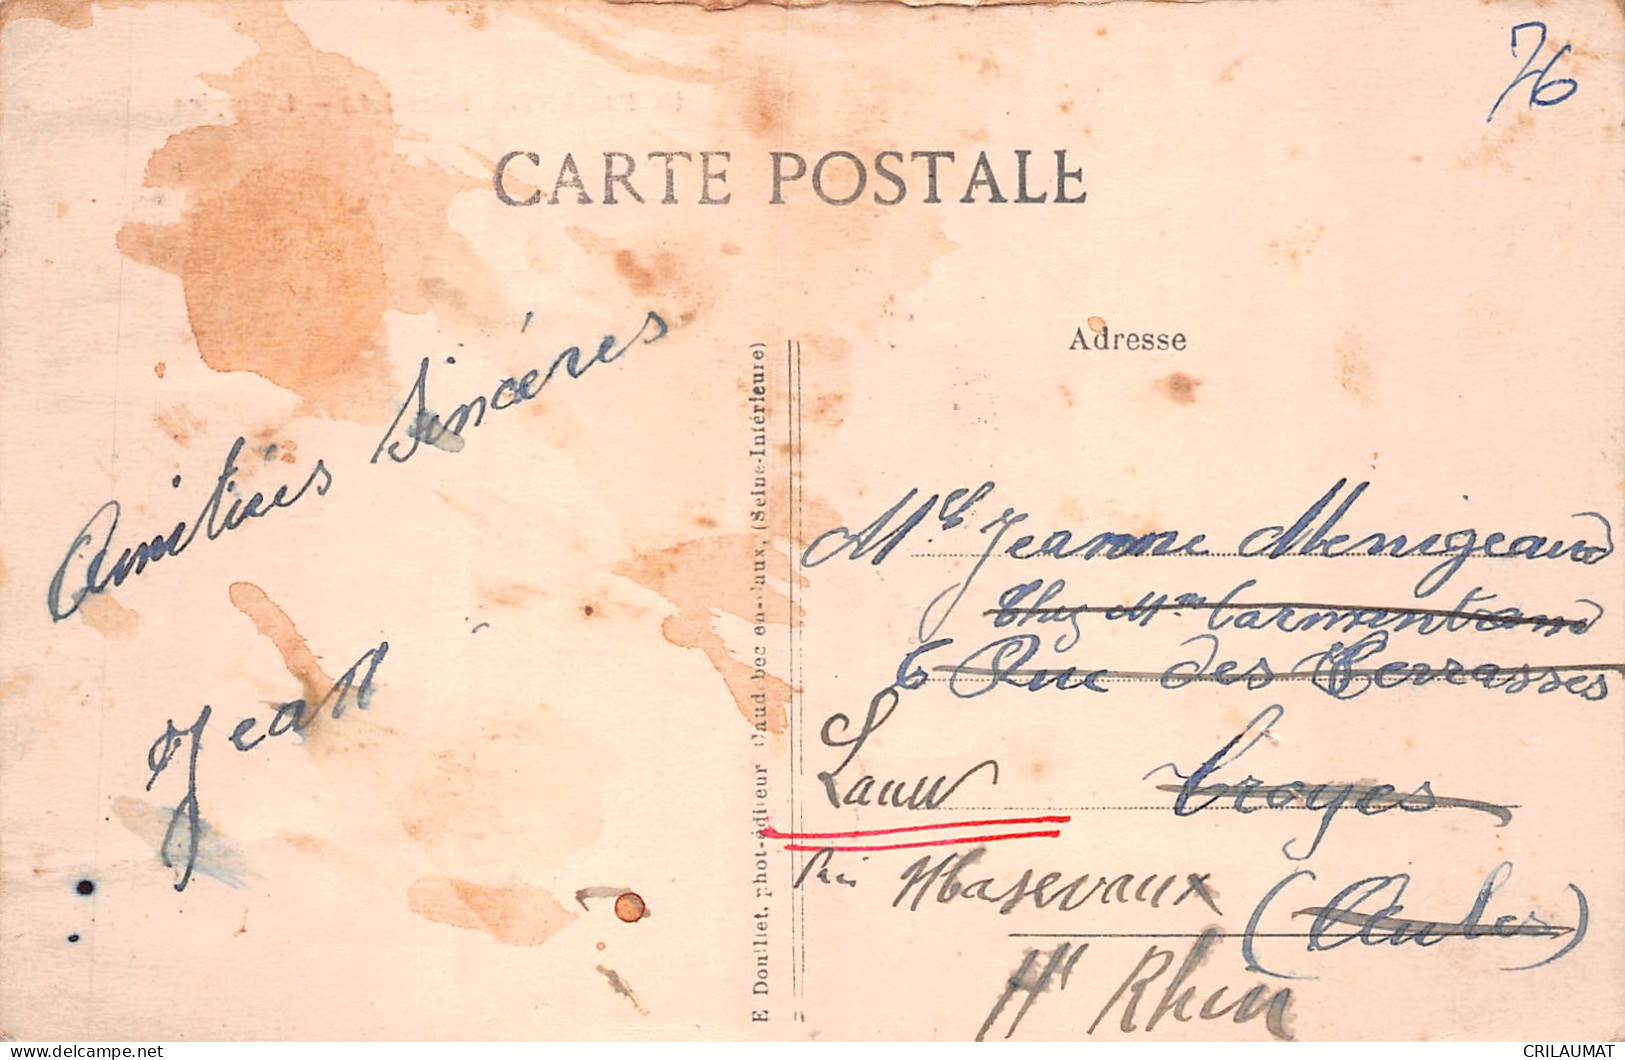 76
CARTE POSTALE
Adresse
Amitiés Sincéres
Jean
E. Douillet, phot-éditeur Caudebec-en-Caux, (Seine-Intérieure)
Mlle Jeanne Menigeaud
Chez Mme Carmentrand
6 Rue des Terrasses
Lauw
Troyes
Près Masevaux
(Aube)
Ht Rhin
CRILAUMAT